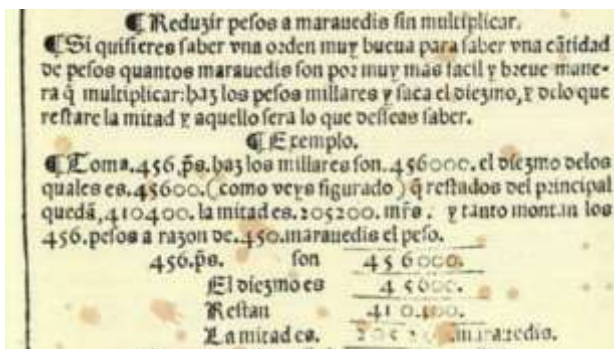 ¶ Reduzir pesos a marauedis sin multiplicar.
¶ Si quisieres saber vna orden muy buena para saber vna cãtidad
de pesos quantos marauedis son por muy mas facil y breue mane-
ra q̃ multiplicar: haz los pesos millares y saca el diezmo, y delo que
restare la mitad y aquello sera lo que desseas saber.
¶ Exemplo.
¶ Toma .456. p̃s. haz los millares son .456000. el diezmo delos
quales es .45600. (como veys figurado) q̃ restados del principal
quedã, 410400. la mitad es .205200. mr̃s. y tanto montan los
456. pesos a razon de .450. marauedis el peso.
456. p̃s. son 456000.
El diezmo es 45600.
Restan 410400.
La mitad es. marauedis.